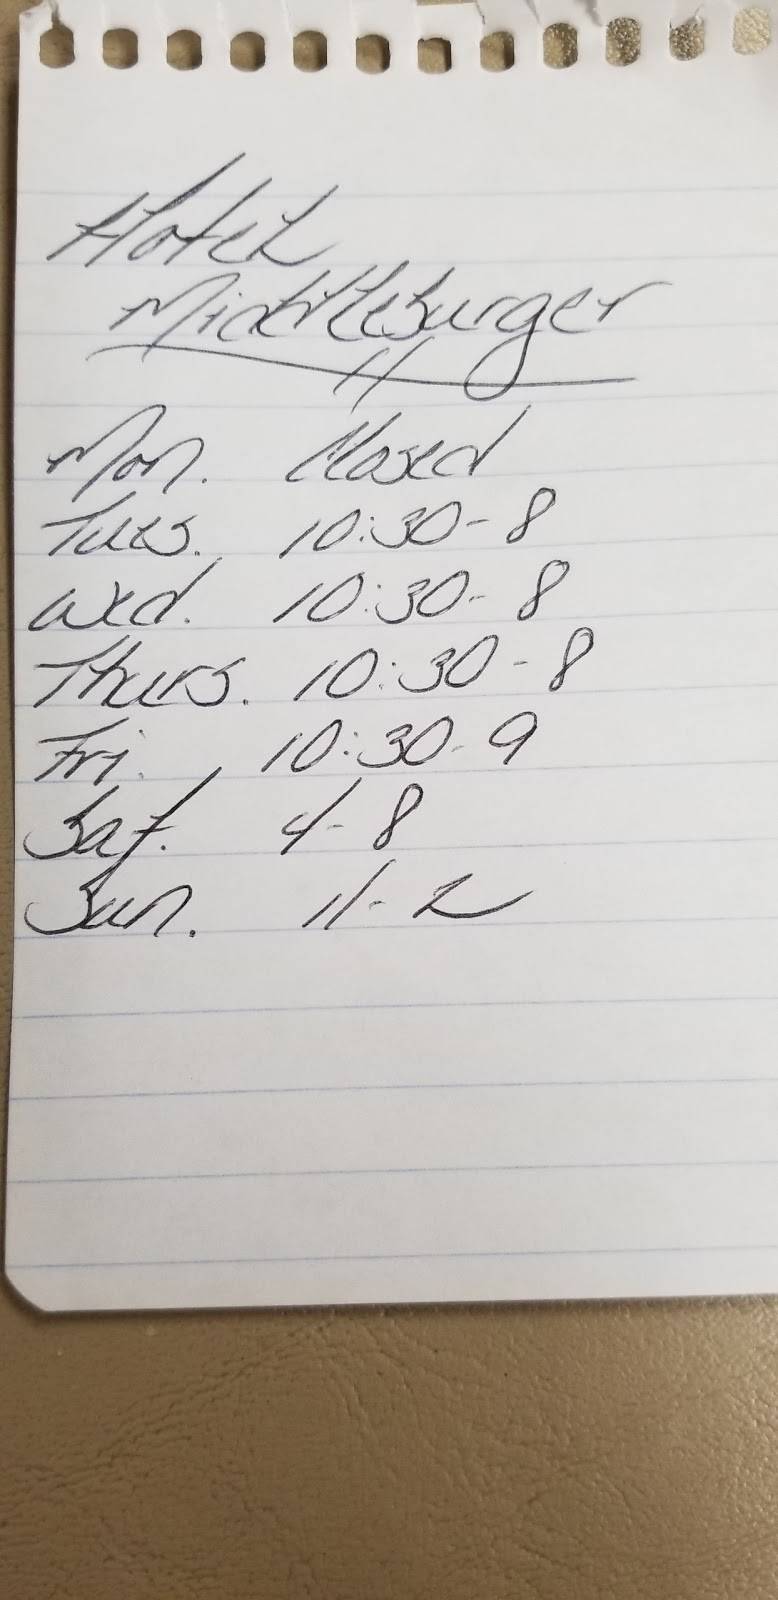 Hotel
Middleburger
Mon. Closed
Tues. 10:30-8
Wed. 10:30-8
Thurs. 10:30-8
Fri. 10:30-9
Sat. 4-8
Sun. 11-2